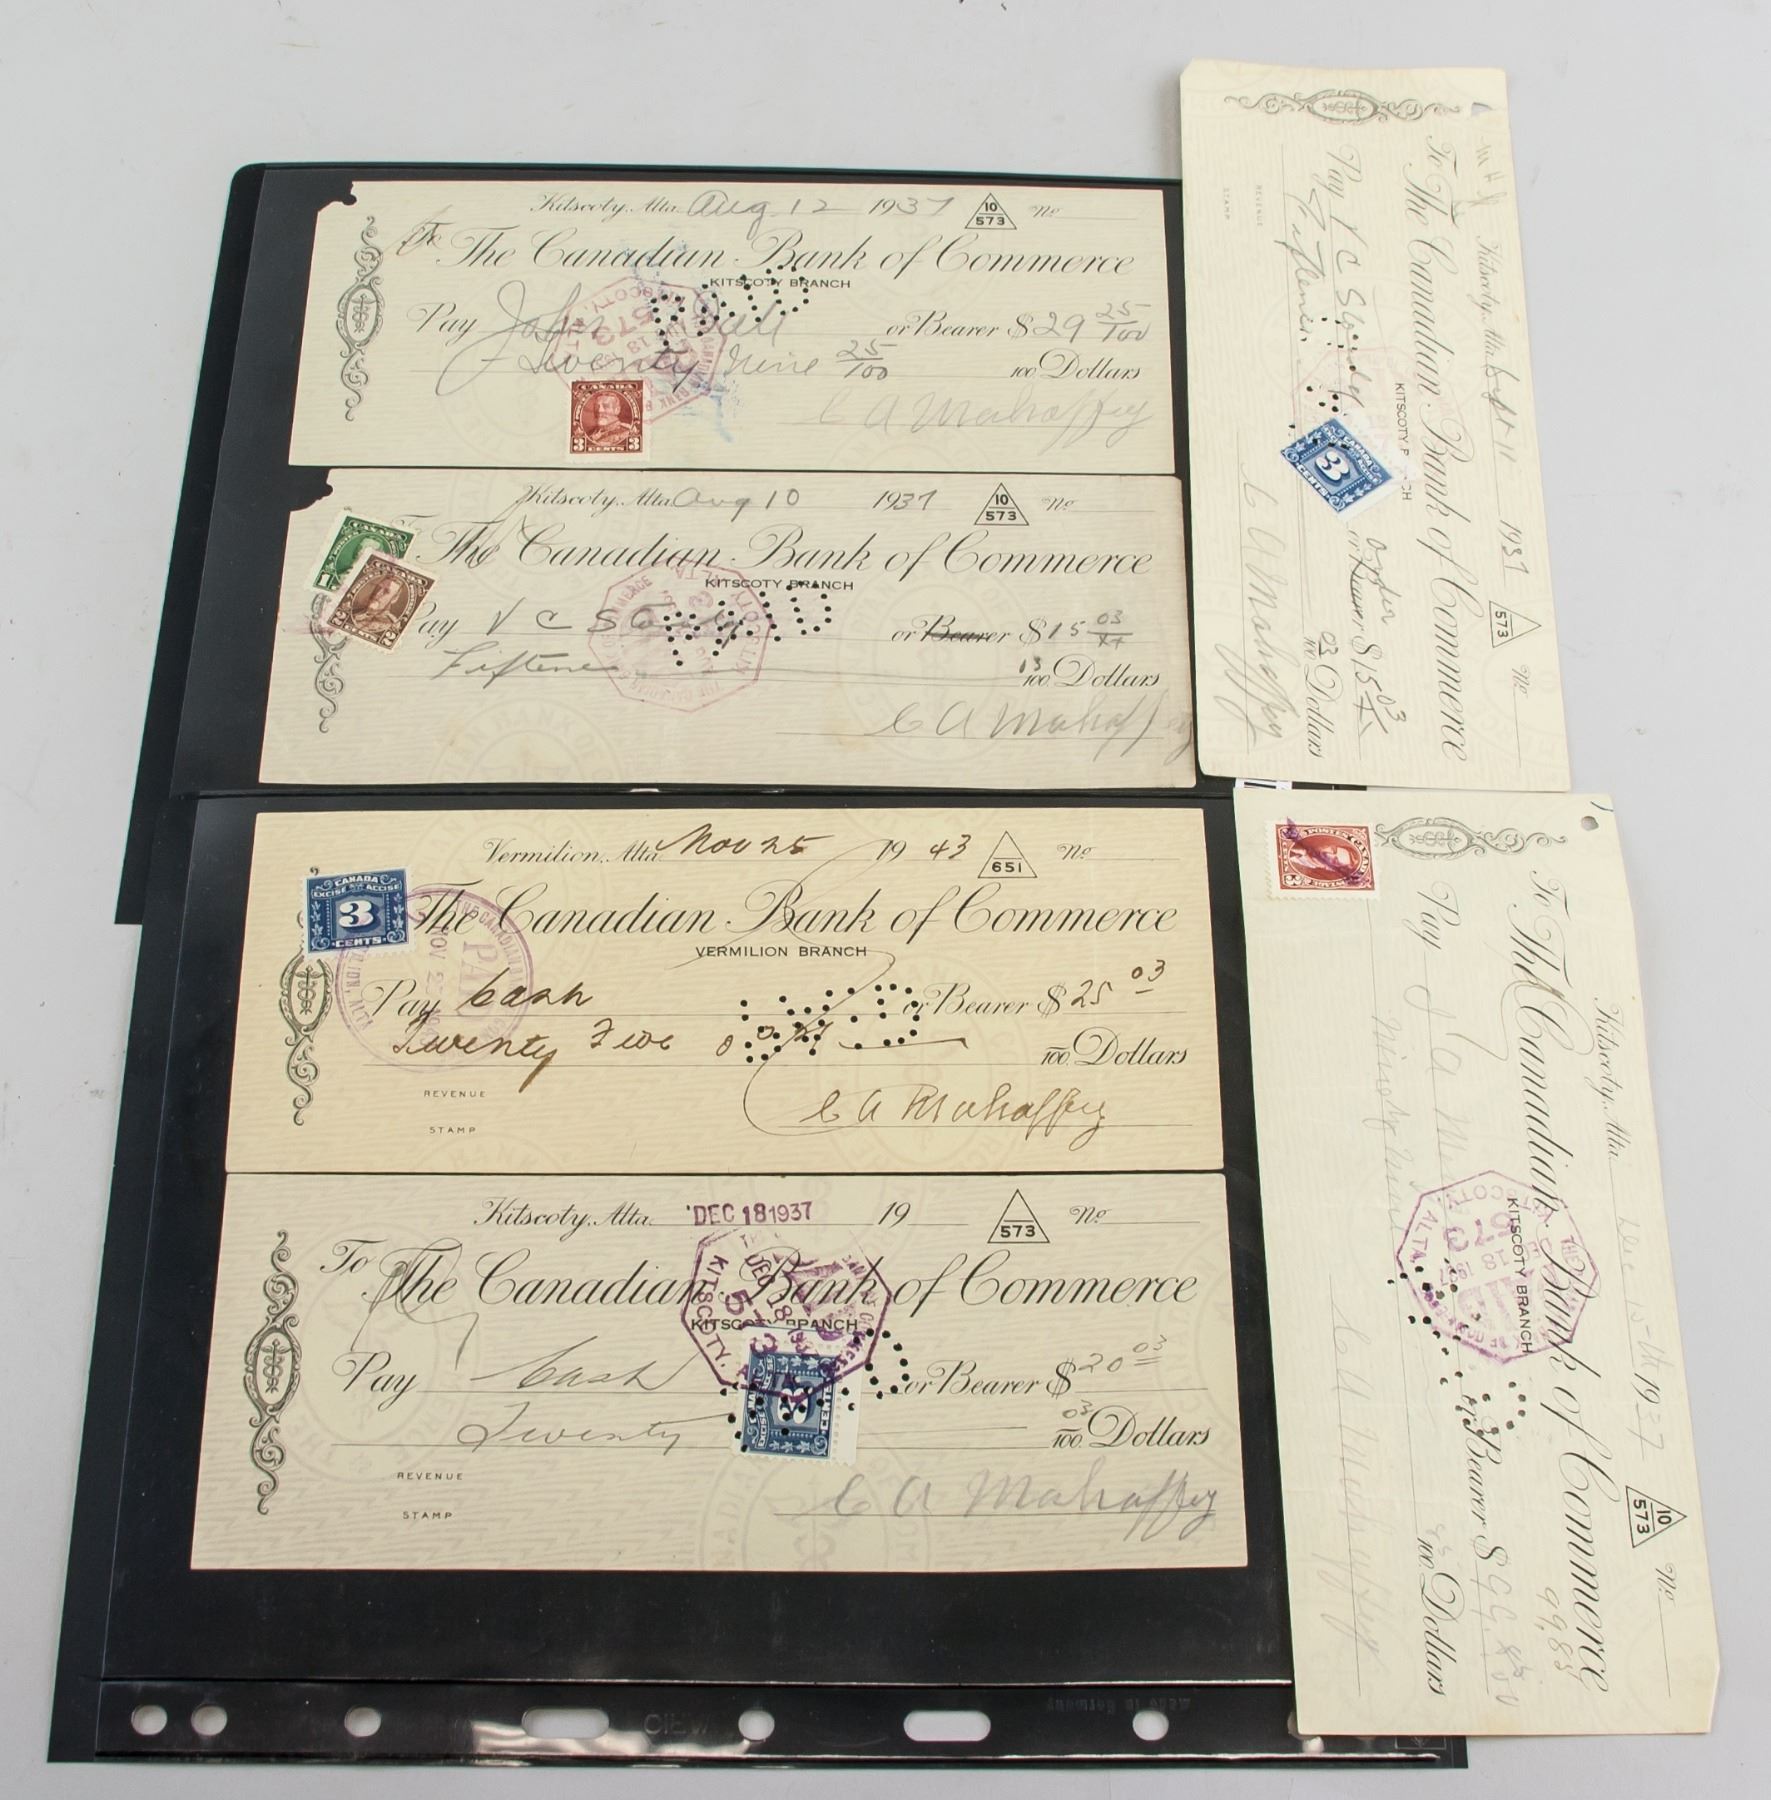 Kitscoty, Alta. Aug 12 1937 10 573 No
To The Canadian Bank of Commerce
KITSCOTY BRANCH
Pay John or Bearer $ 29 25/100
Twenty Nine 25/100 100 Dollars
CANADA
3 CENTS 3
C A Mahaffey
Kitscoty, Alta. Aug 10 1937 10 573 No
To The Canadian Bank of Commerce
KITSCOTY BRANCH
Pay V C or Bearer $ 15 03/xx
Fifteen 100 Dollars
C A Mahaffey
Vermilion, Alta. Nov 25 19 43 651 No
CANADA
EXCISE ACCISE
3
CENTS
The Canadian Bank of Commerce
VERMILION BRANCH
Pay Cash or Bearer $ 25 03
Twenty Five 100 Dollars
REVENUE
STAMP
C A Mahaffey
Kitscoty, Alta. DEC 18 1937 19 573 No
To The Canadian Bank of Commerce
KITSCOTY BRANCH
Pay Cash or Bearer $ 20 03
Twenty 03/100 Dollars
REVENUE
STAMP
C A Mahaffey
Kitscoty, Alta. Sept 11 1937 573 No
To The Canadian Bank of Commerce
KITSCOTY BRANCH
Pay V C order or Bearer $ 15 03
Fifteen 03/100 Dollars
REVENUE
STAMP
CANADA
3
CENTS
C A Mahaffey
Kitscoty, Alta. Dec 1937 10 573 No
To The Canadian Bank of Commerce
KITSCOTY BRANCH
99.85
Pay or Bearer $
Ninety Nine 100 Dollars
C A Mahaffey
made in Germany